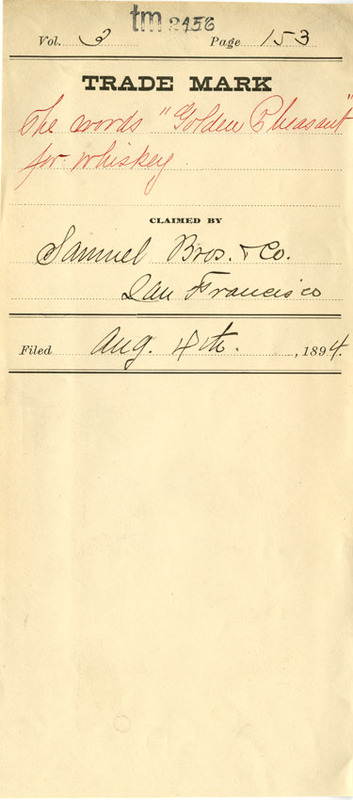 tm 2456
Vol. 3 Page 153
TRADE MARK
The words "Golden Pheasant"
for whiskey.
CLAIMED BY
Samuel Bros. & Co.
San Francisco
Filed Aug. 4th. , 1894.